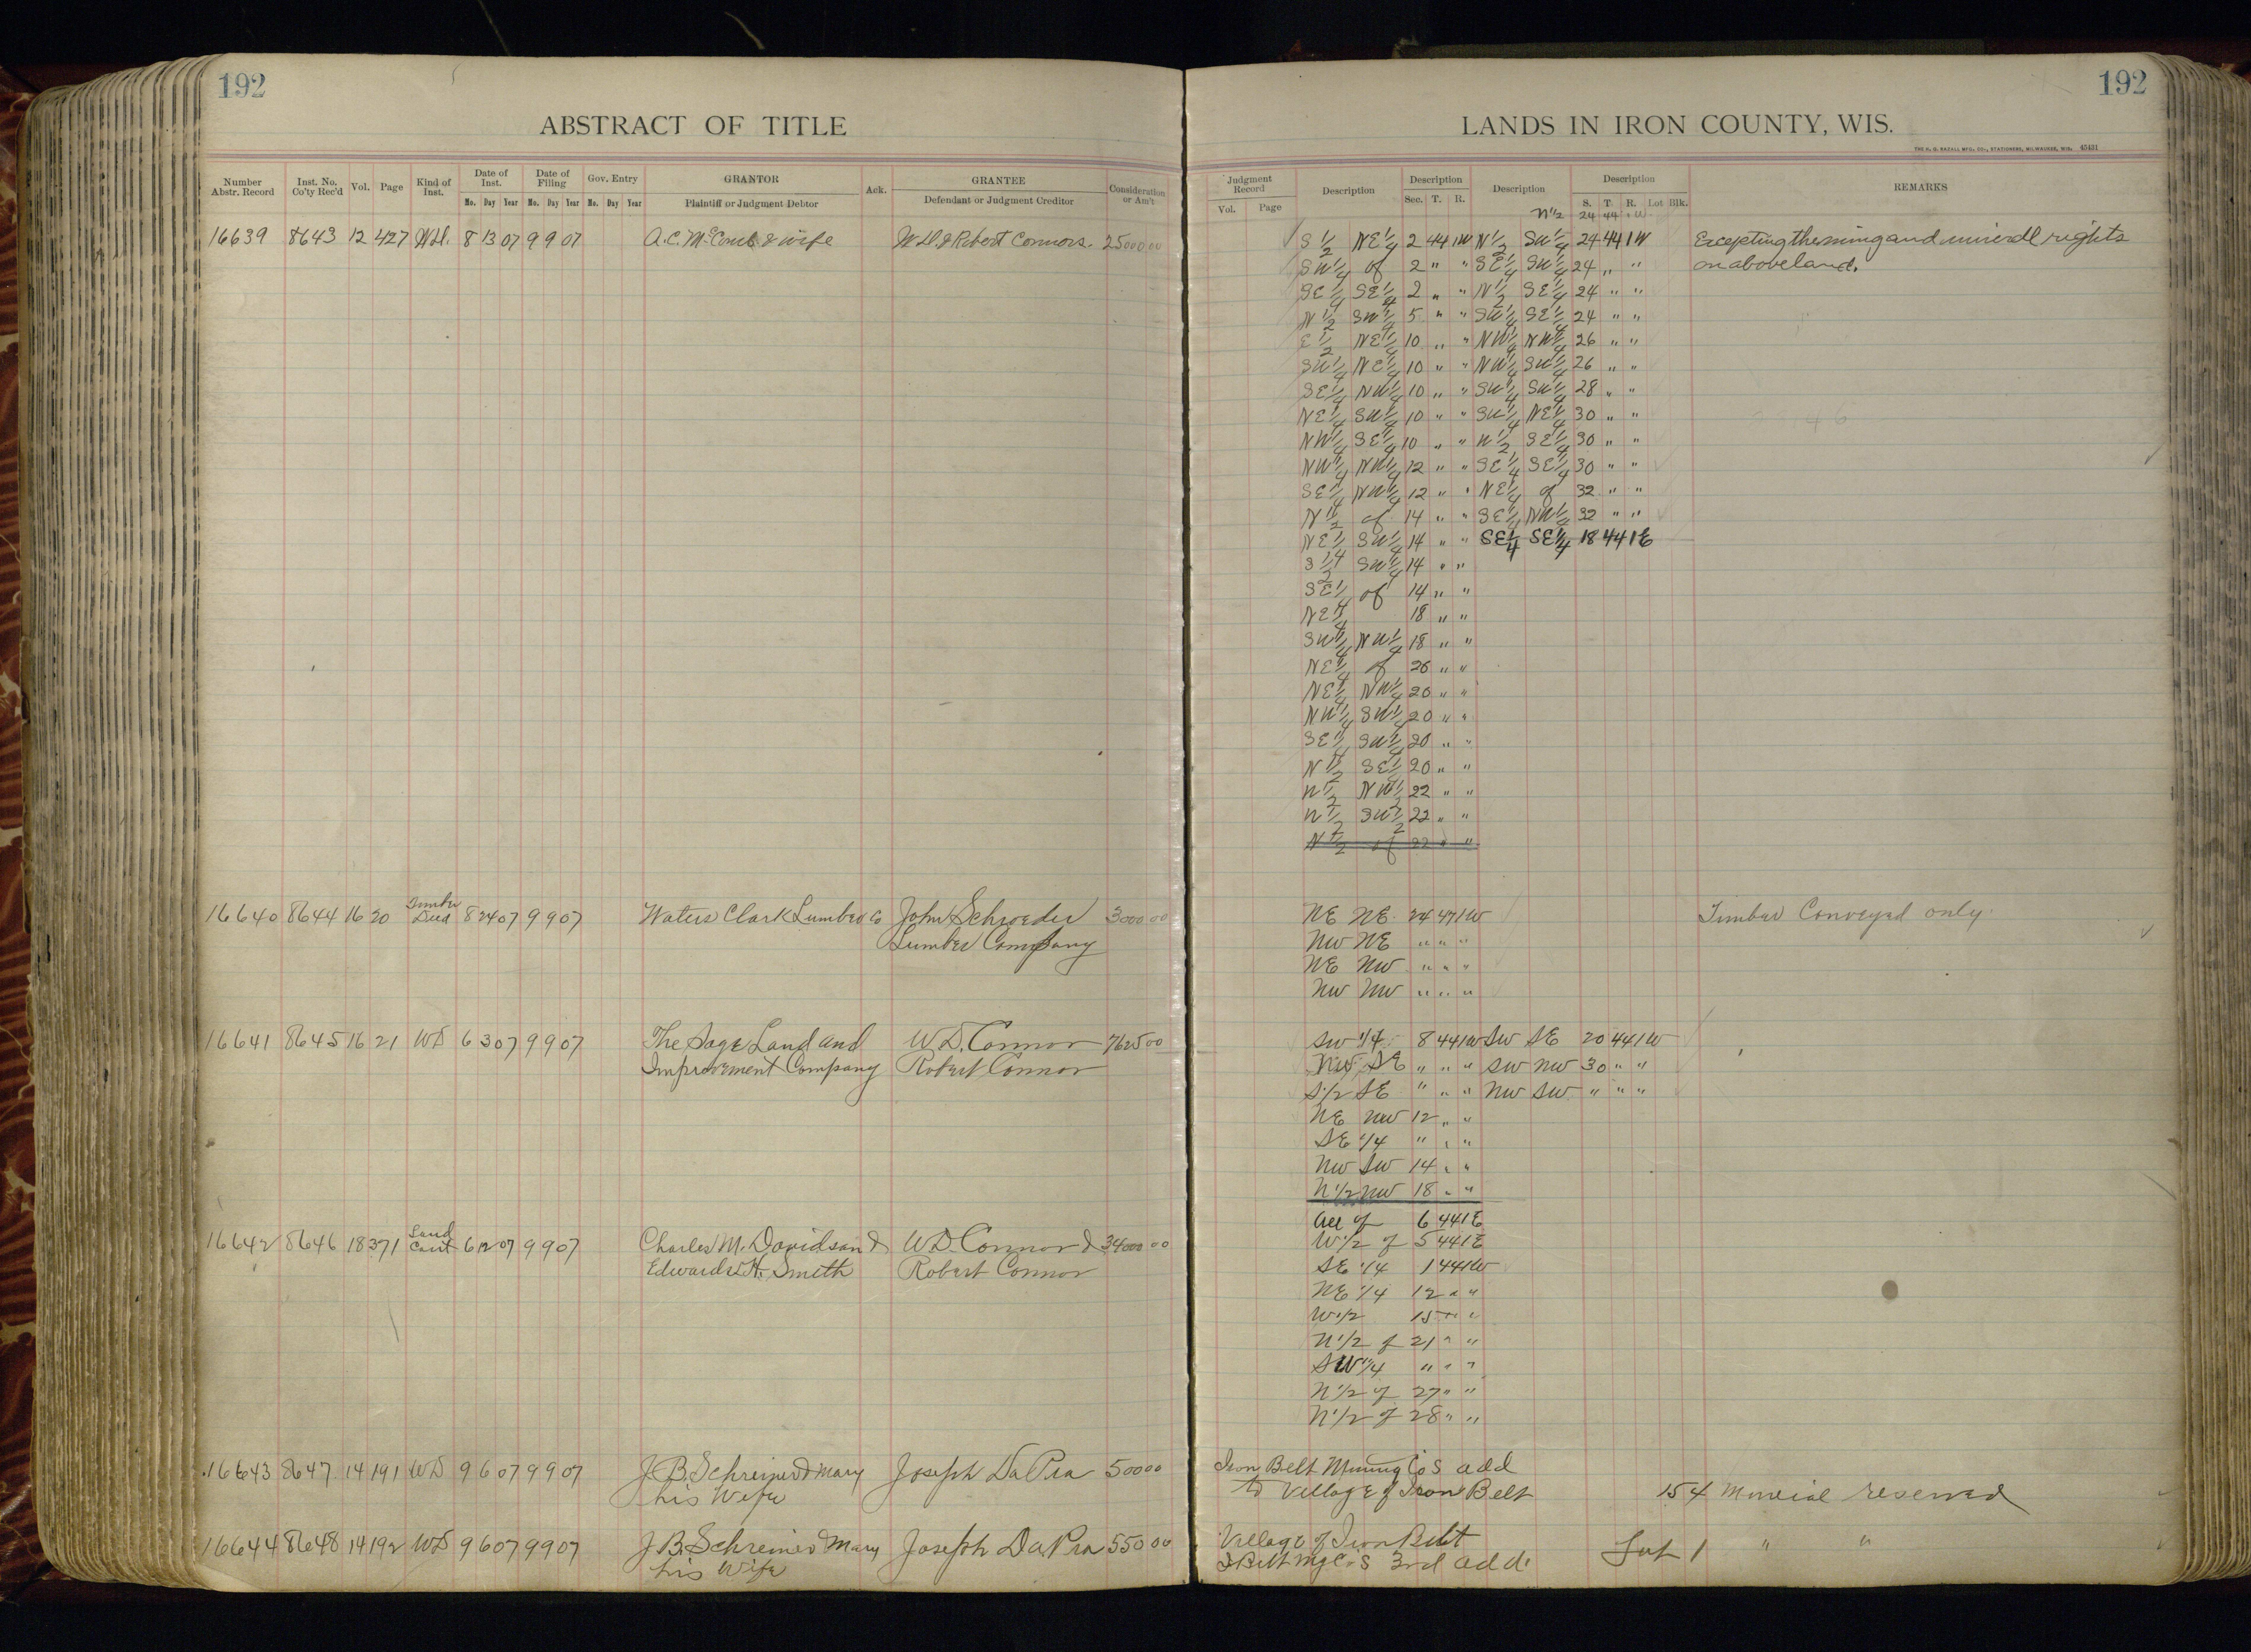 192
ABSTRACT OF TITLE
Number Abstr. Record Inst. No. Co'ty Rec'd Vol. Page Kind of Inst. Date of Inst. Mo. Day Year Date of Filing Mo. Day Year Gov. Entry Mo. Day Year GRANTOR Plaintiff or Judgment Debtor Ack. GRANTEE Defendant or Judgment Creditor Consideration or Am't
16639 8643 12 427 W.D. 8 13 07 9 9 07 A.C. McComb & wife W D & Robert Connors. 25000 00
16640 8644 16 20 Timber Deed 8 24 07 9 9 07 Waters Clark Lumber Co John Schroeder 3000 00
Lumber Company
16641 8645 16 21 WD 6 3 07 9 9 07 The Sage Land and W.D. Connor 7625 00
Improvement Company Robert Connor
16642 8646 18 371 Land Cont 6 12 07 9 9 07 Charles M. Davidson & W.D. Connor & 34000 00
Edward H. Smith Robert Connor
16643 8647 14 191 WD 9 6 07 9 9 07 J.B. Schreiner & Mary Joseph DaPra 500 00
his Wife
16644 8648 14 192 WD 9 6 07 9 9 07 J.B. Schreiner & Mary Joseph DaPra 550 00
his Wife
192
LANDS IN IRON COUNTY, WIS.
Judgment Record Vol. Page Description Description Sec. T. R. Description Description S. T. R. Lot Blk. REMARKS
N 1/2 24 44 1 W
S 1/2 NE 1/4 2 44 1W N 1/2 SW 1/4 24 44 1 W Excepting the ming and minerdl rights
SW 1/4 of 2 " " SE 1/4 SW 1/4 24 " " on above land.
SE 1/4 SE 1/4 2 " " N 1/2 SE 1/4 24 " "
N 1/2 SW 1/4 5 " " SW 1/4 SE 1/4 24 " "
E 1/2 NE 1/4 10 " " NW 1/4 NW 1/4 26 " "
SW 1/4 NE 1/4 10 " " NW 1/4 SW 1/4 26 " "
SE 1/4 NW 1/4 10 " " SW 1/4 SW 1/4 28 " "
NE 1/4 SW 1/4 10 " " SW 1/4 NE 1/4 30 " "
NW 1/4 SE 1/4 10 " " N 1/2 SE 1/4 30 " "
NW 1/4 NW 1/4 12 " " SE 1/4 SE 1/4 30 " "
SE 1/4 NW 1/4 12 " " NE 1/4 of 32 " "
N 1/2 of 14 " " SE 1/4 NW 1/4 32 " "
NE 1/4 SW 1/4 14 " " SE 1/4 SE 1/4 18 44 1 E
S 1/2 SW 1/4 14 " "
SE 1/4 of 14 " "
NE 1/4 18 " "
SW 1/4 NW 1/4 18 " "
NE 1/4 of 20 " "
NE 1/4 NW 1/4 20 " "
NW 1/4 SW 1/4 20 " "
SE 1/4 SW 1/4 20 " "
N 1/2 SE 1/4 20 " "
N 1/2 NW 1/2 22 " "
N 1/2 SW 1/2 22 " "
N 1/2 of 22 " "
NE NE 24 47 1 W Timber Conveyed only.
NW NE " " "
NE NW " " "
NW NW " " "
SW 1/4 8 44 1W SW SE 20 44 1 W
NW SE " " " SW NW 30 " "
S 1/2 SE " " " NW SW " " "
NE NW 12 " "
SE 1/4 " " "
NW SW 14 " "
N 1/2 NW 18 " "
All of 6 44 1 E
W 1/2 of 5 44 1 E
SE 1/4 1 44 1 W
NE 1/4 12 " "
W 1/2 15 " "
N 1/2 of 21 " "
SW 1/4 " " "
N 1/2 of 27 " "
N 1/2 of 28 " "
Iron Belt Mining Co's add
to Village of Iron Belt 15 4 Mineral reserved
Village of Iron Belt Lot 1 " "
I Belt Mg Co's 3rd add.